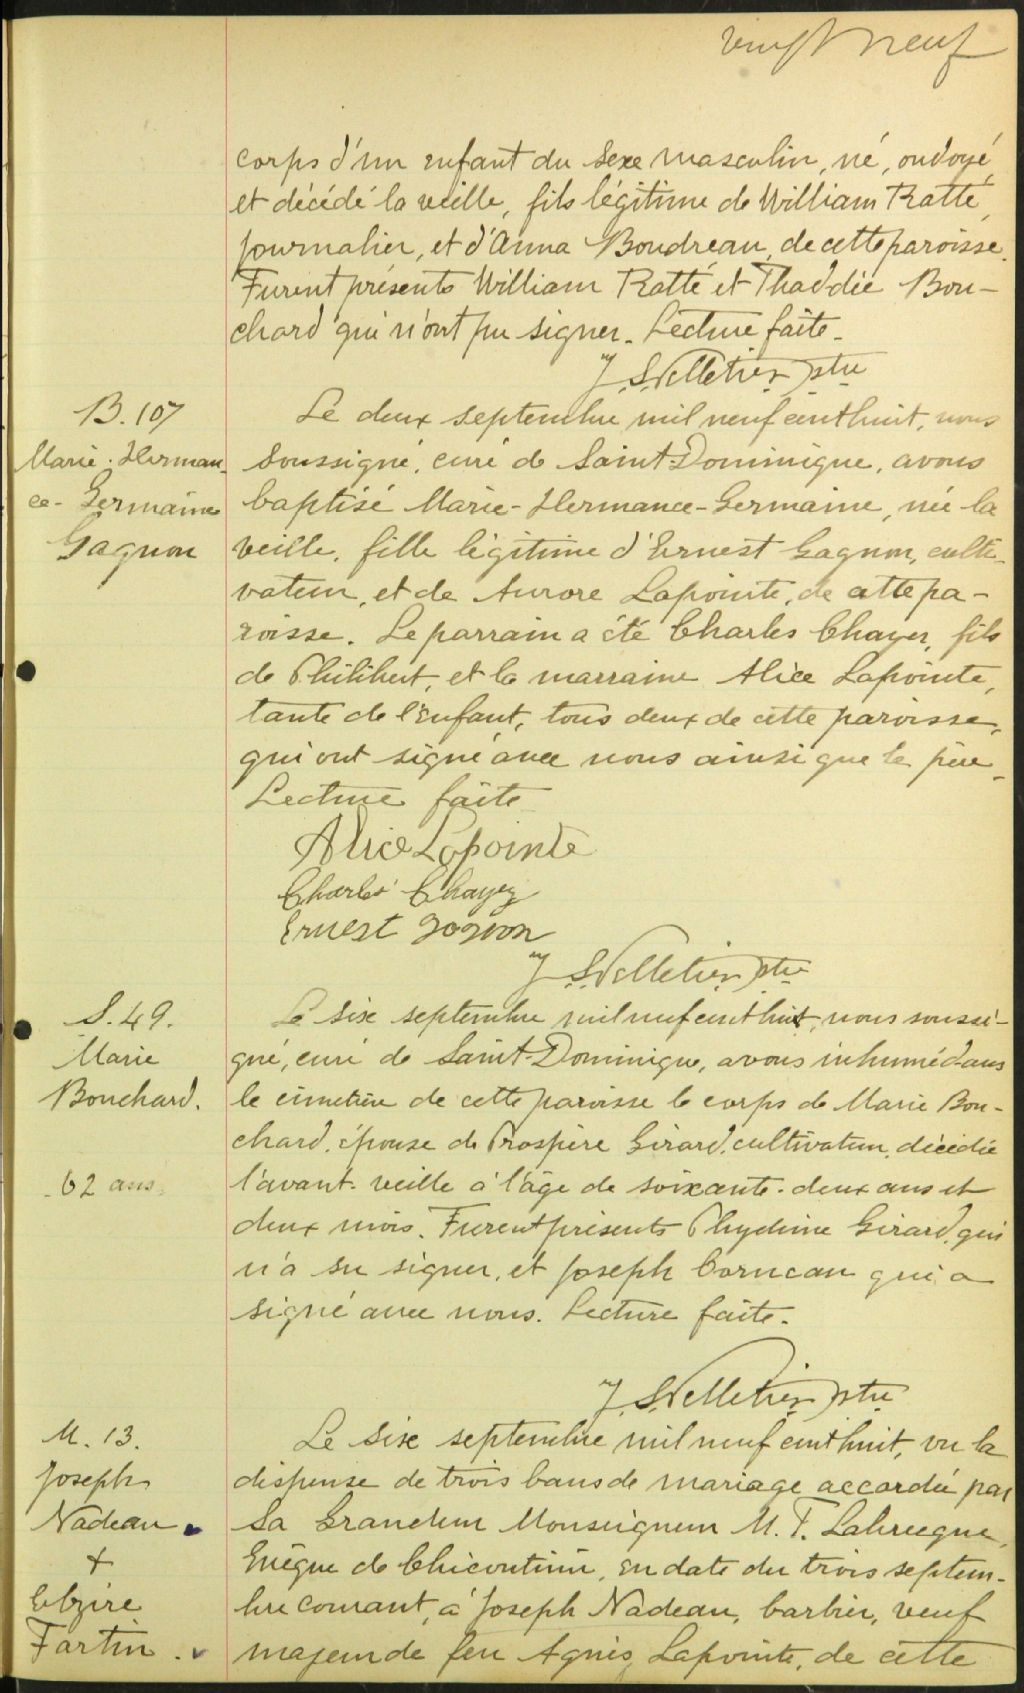 vingt neuf
corps d'un enfant du sexe masculin, né, ondoyé
et décédé la veille, fils légitime de William Ratté,
journalier, et d'Anna Boudreau, de cette paroisse.
Furent présents William Ratté et Thaddée Bou-
chard qui n'ont pu signer. Lecture faite.
J. S. Pelletier, ptre
B. 107
Marie-Herman-
ce-Germaine
Gagnon
Le deux septembre mil neuf cent huit, nous
soussigné, curé de Saint-Dominique, avons
baptisé Marie-Hermance-Germaine, née la
veille, fille légitime d'Ernest Gagnon, culti-
vateur, et de Aurore Lapointe, de cette pa-
roisse. Le parrain a été Charles Chayer, fils
de Philibert, et la marraine Alice Lapointe,
tante de l'enfant, tous deux de cette paroisse,
qui ont signé avec nous ainsi que le père.
Lecture faite
Alice Lapointe
Charles Chayer
Ernest Gagnon
J. S. Pelletier, ptre
S. 49.
Marie
Bouchard.
62 ans.
Le six septembre mil neuf cent huit, nous soussi-
gné, curé de Saint-Dominique, avons inhumé dans
le cimetière de cette paroisse le corps de Marie Bou-
chard, épouse de Prospère Girard, cultivateur, décédée
l'avant-veille à l'âge de soixante-deux ans et
deux mois. Furent présents Phydime Girard, qui
n'a su signer, et Joseph Corneau qui a
signé avec nous. Lecture faite.
J. S. Pelletier, ptre
M. 13.
Joseph
Nadeau
+
Elzire
Fortin.
Le six septembre mil neuf cent huit, vu la
dispense de trois bans de mariage accordée par
Sa Grandeur Monseigneur M. T. Labrecque,
Evêque de Chicoutimi, en date du trois septem-
bre courant, à Joseph Nadeau, barbier, veuf
majeur de feu Agnès Lapointe, de cette